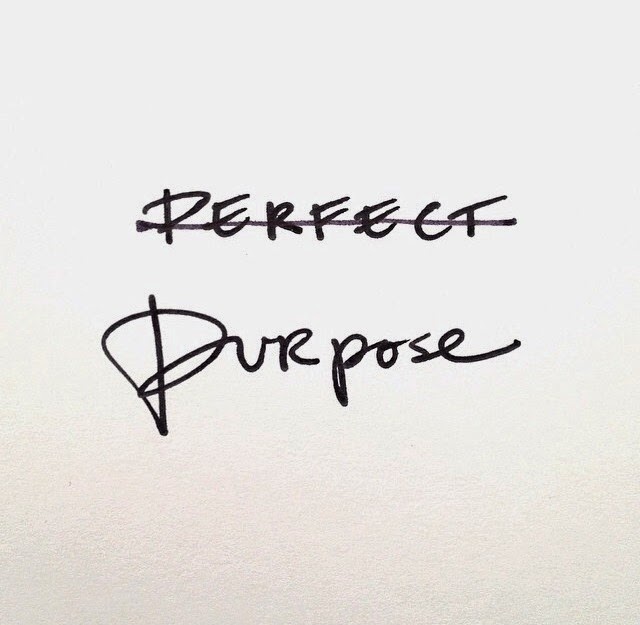 PERFECT
Purpose